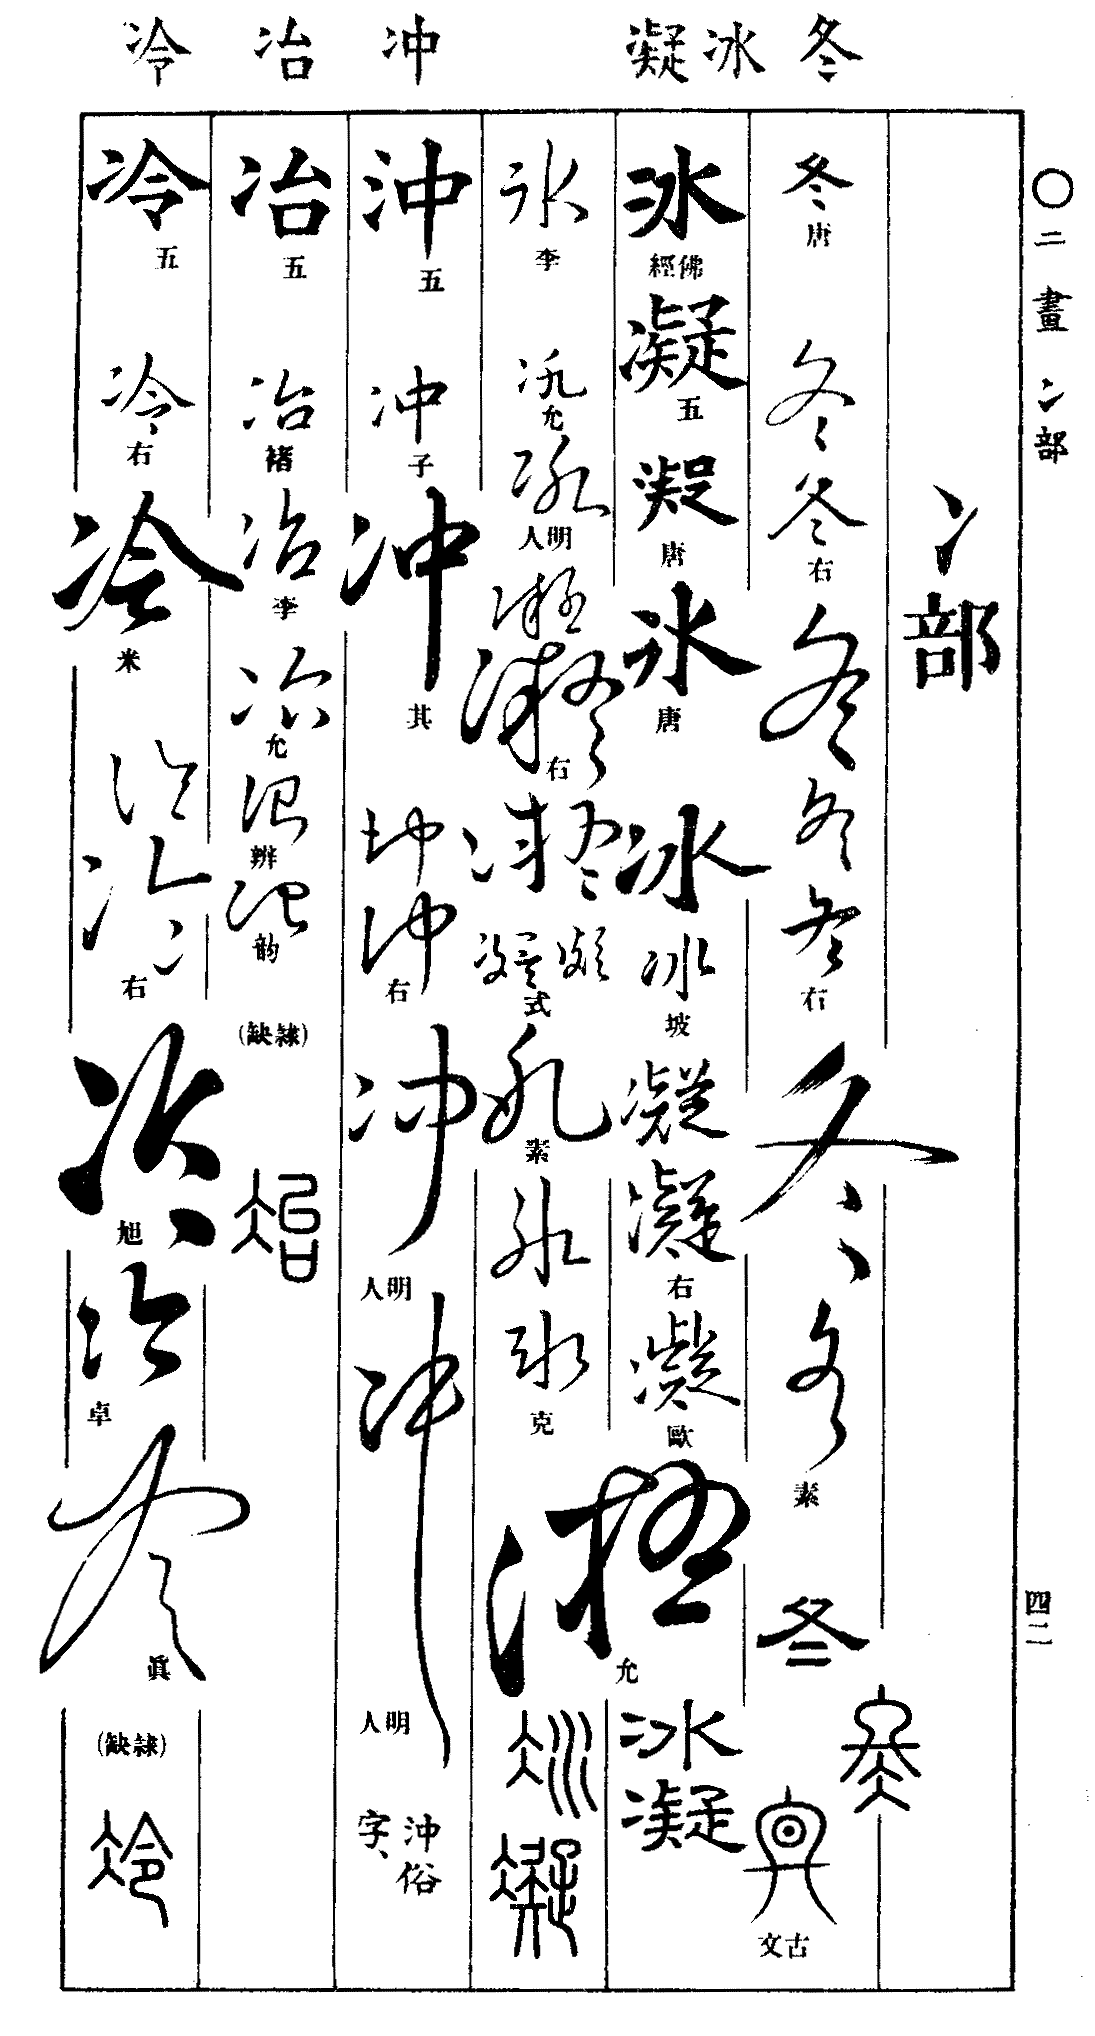 冬 冰 凝 冲 冶 冷
〇二畫 冫部
四二
冫部
冬 唐
冬 冬 右
冬 冬 冬 右
冬 冬 素
冬
古文
冰 佛經
凝 五
凝 唐
冰 唐
冰 冰 坡
凝 凝 右
凝 歐
凝 允
冰 凝
冰 李
冰 允
冰 明人
凝 凝 右
凝
式
冰 素
冰 冰 克
冰 凝
沖 五
冲 子
冲 其
冲 冲 右
冲 明人
冲 明人
沖俗字、
冶 五
冶 褚
冶 李
冶 允
冶 辨
冶 韵
(隸缺)
冶
冷 五
冷 右
冷 米
冷 冷 右
冷 旭
冷 卓
冷 眞
(隸缺)
冷